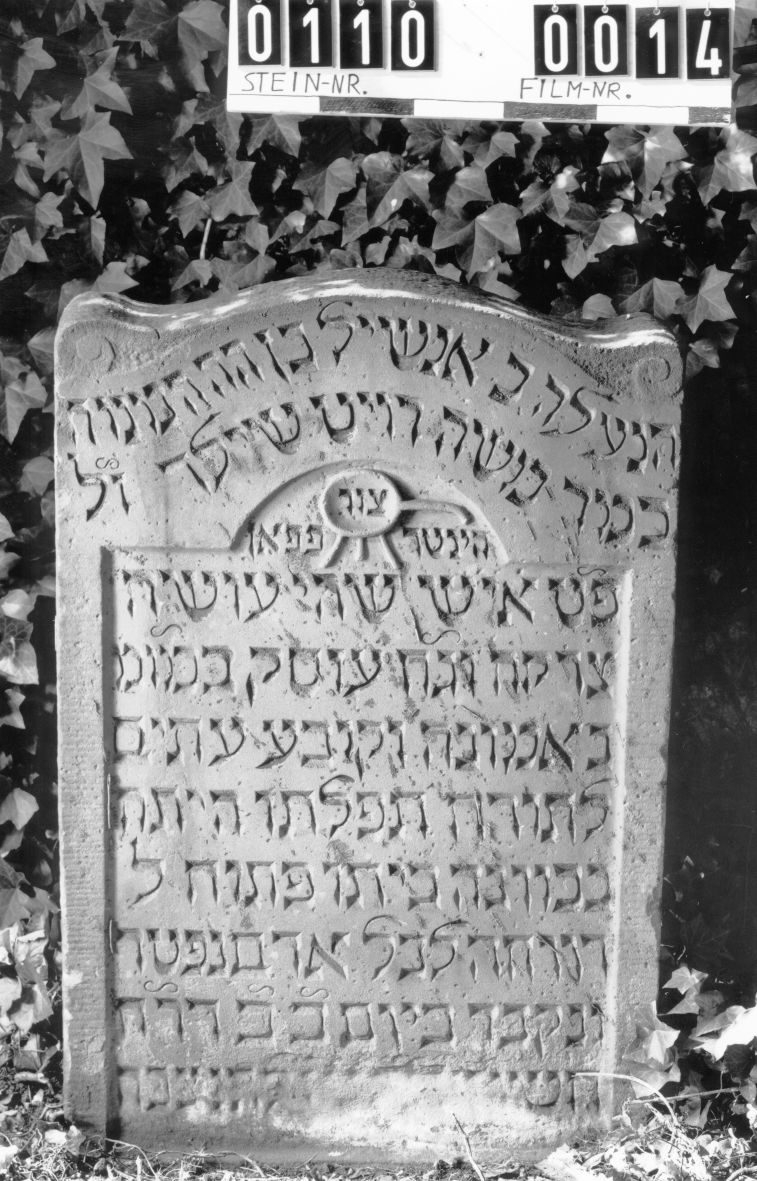 0110 0014
STEIN-NR. FILM-NR.
הנעלה כ אנשיל בן הה המנוח
כמר משה רויט שיילד
זל
צור
הינטר פפאן
פט איש שהי עושה
צדקה וגח עוסק במומ
באמונה וקובע עתים
לתורה תפלתו היתה
בכוונה ביתו פתוח ל
רווחה לכל אדם נפטר
ונקבר ביום ב ב דרח